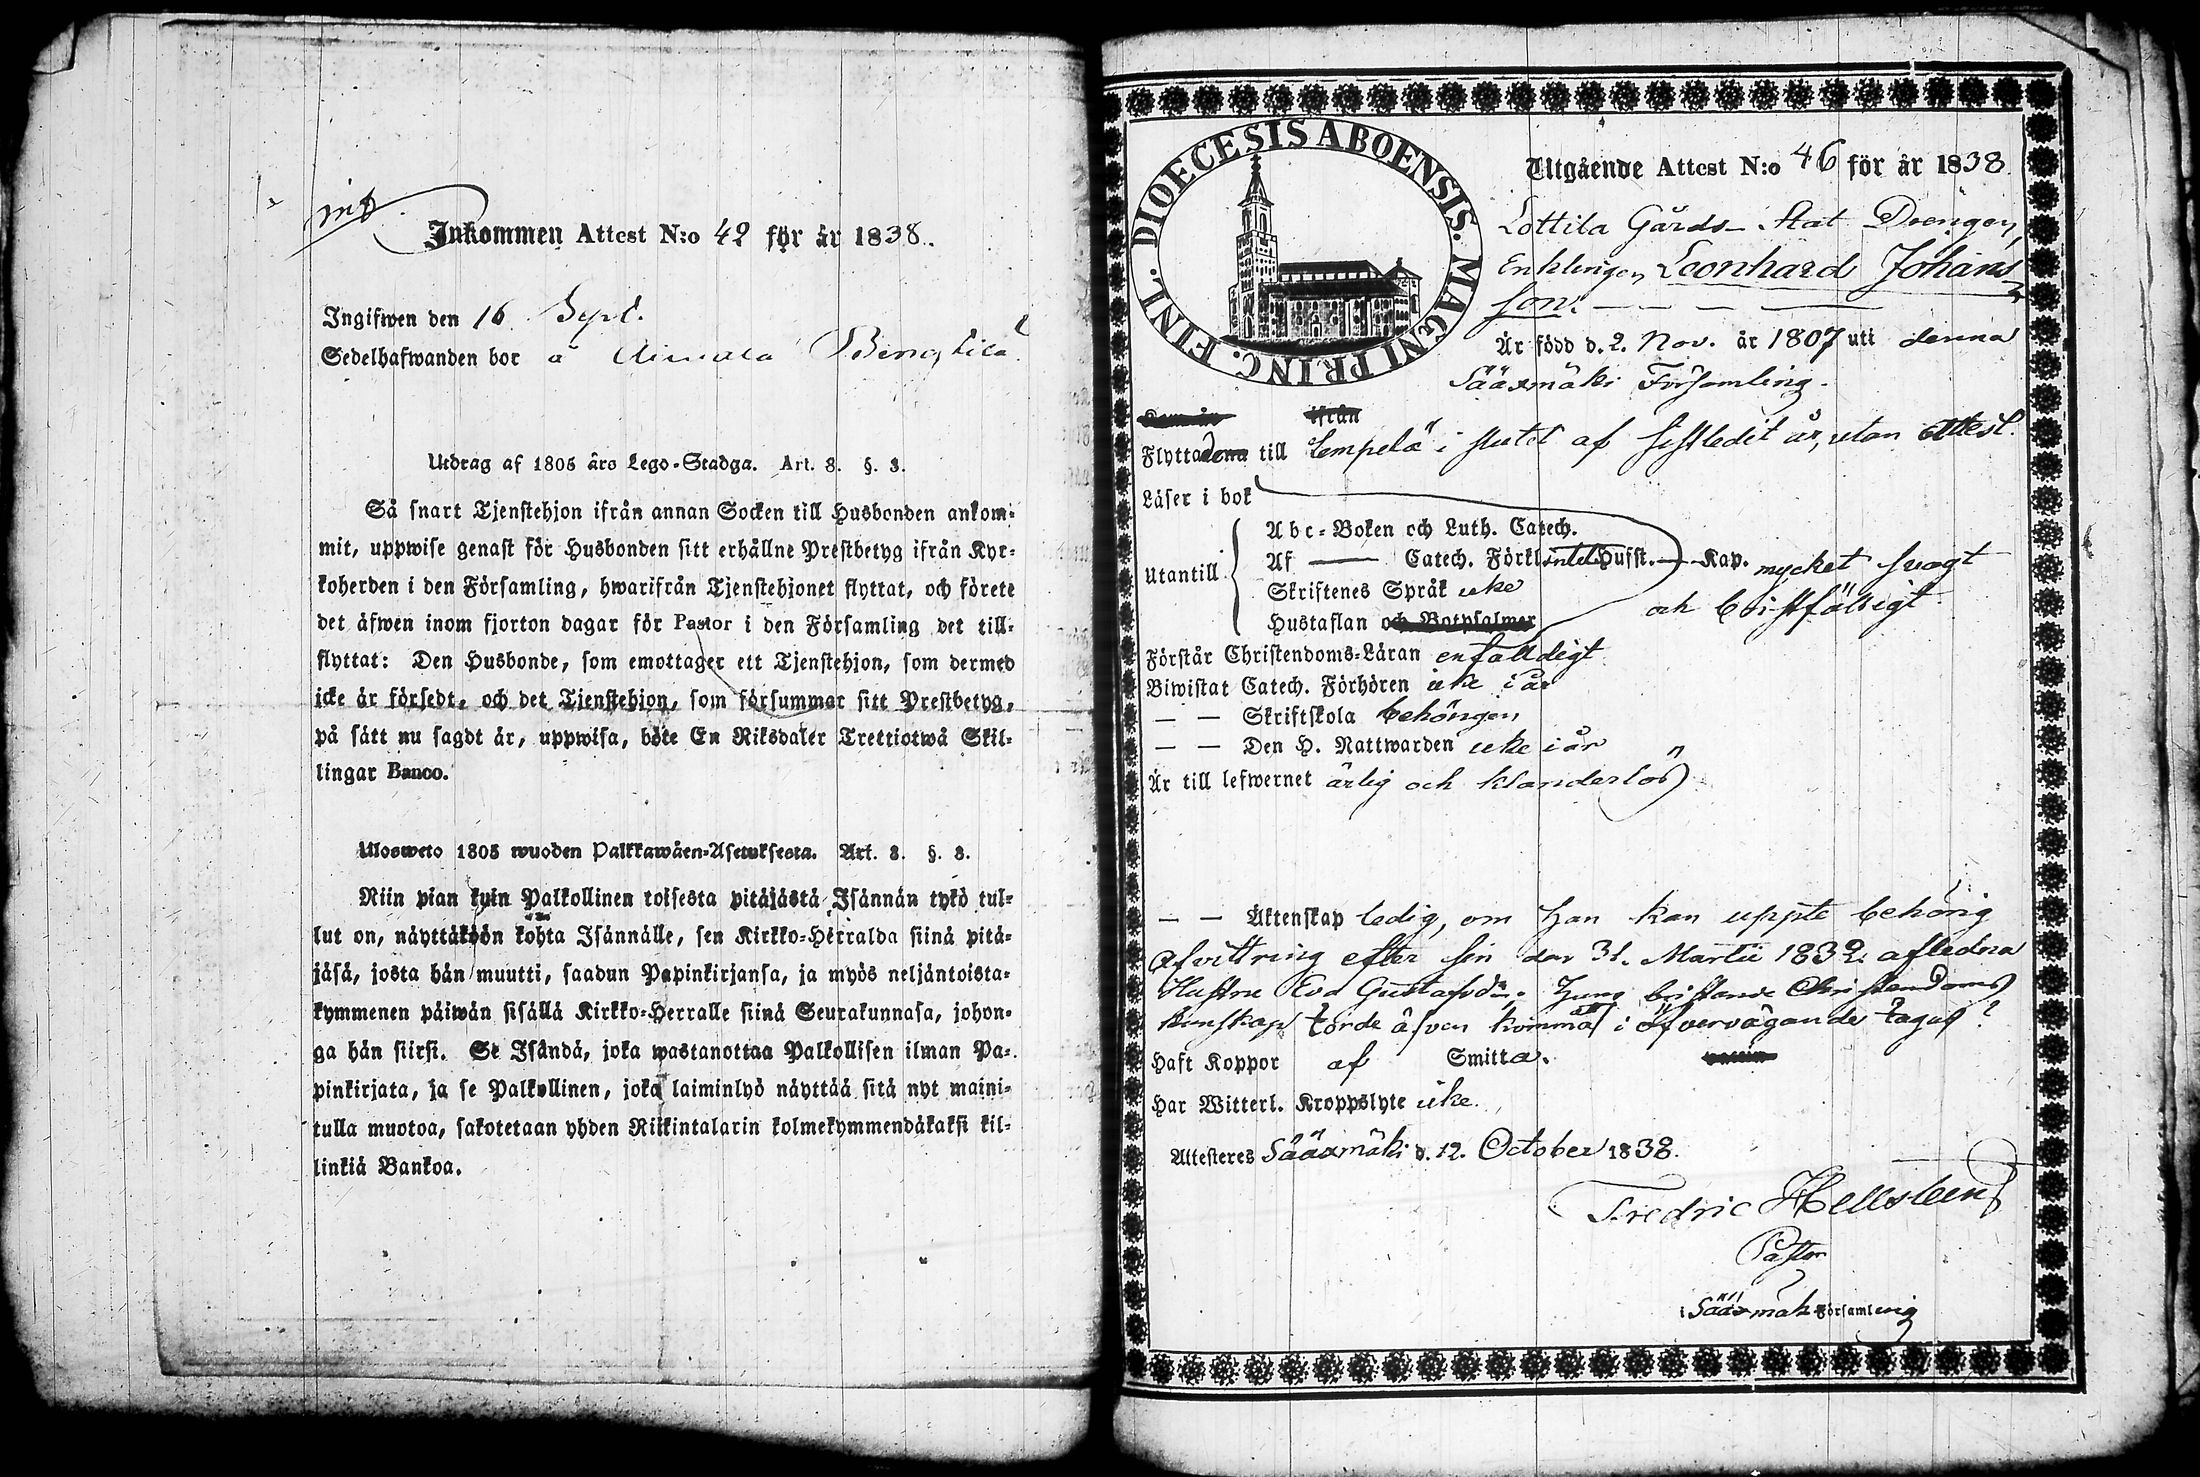 Inkommen Attest N:o 42 för år 1838.
Ingifwen den 16 Sept.
Sedelhafwanden bor å Aimala Bengtilä
Utdrag af 1805 års Lego-Stadga. Art. 8. §. 3.
Så snart Tjenstehjon ifrån annan Socken till Husbonden ankom-
mit, uppwise genast för Husbonden sitt erhållne Prestbetyg ifrån Kyr-
koherden i den Församling, hwarifrån Tjenstehjonet flyttat, och förete
det äfwen inom fjorton dagar för Pastor i den Församling det till-
flyttat: Den Husbonde, som emottager ett Tjenstehjon, som dermed
icke är försedt, och det Tjenstehjon, som försummar sitt Prestbetyg,
på sätt nu sagdt är, uppwisa, böte En Riksdaler Trettiotwå Skil-
lingar Banco.
Ulosweto 1805 wuoden Palkkawäen-Asetuksesta. Art. 8. §. 3.
Niin pian kuin Palkollinen toisesta pitäjästä Isännän tykö tul-
lut on, näyttäköön kohta Isännälle, sen Kirkko-Herralda siinä pitä-
jäsä, josta hän muutti, saadun Papinkirjansa, ja myös neljäntoista-
kymmenen päiwän sisällä Kirkko-Herralle siinä Seurakunnasa, johon-
ga hän siirsi. Se Isändä, joka wastanottaa Palkollisen ilman Pa-
pinkirjata, ja se Palkollinen, joka laiminlyö näyttää sitä nyt maini-
tulla muotoa, sakotetaan yhden Riikintalarin kolmekymmendäkaksi kil-
linkiä Bankoa.
DIOECESIS ABOENSIS. MAGNI PRINC. FINL.
Utgående Attest N:o 46 för år 1838
Lottila Gårds- Stat Drengen,
Enklingen Leonhard Johans
son.
Är född d. 2. Nov. år 1807 uti denna
Sääxmäki Församling.
ifrån
Flyttade till Lempelä i slutet af sistledit år, utan Attest.
Läser i bok
Utantill
Abc-Boken och Luth. Catech.
Af Catech. Förkl. intet Husst. Kap. mycket svagt
Skriftenes Språk icke
och bristfälligt
Hustaflan och Botpsalmer
Förstår Christendoms-Läran enfalldigt
Biwistat Catech. Förhören icke i år
— — Skriftskola behörigen
— — Den H. Nattwarden icke i år
Är till lefwernet ärlig och klanderlös
— — Äktenskap ledig, om han kan uppte behörig
afvittring efter sin den 31. Martii 1832. afledna
Hustru Eva Gustafsdr. Hans bristande Christendoms
kunskap torde äfven komma i öfvervägande tagas?
Haft Koppor af Smitta.
Har Witterl. Kroppslyte icke.
Attesteres Sääxmäki d. 12. October 1838.
Fredric Hellsteen
Pastor
i Sääxmäki Församling